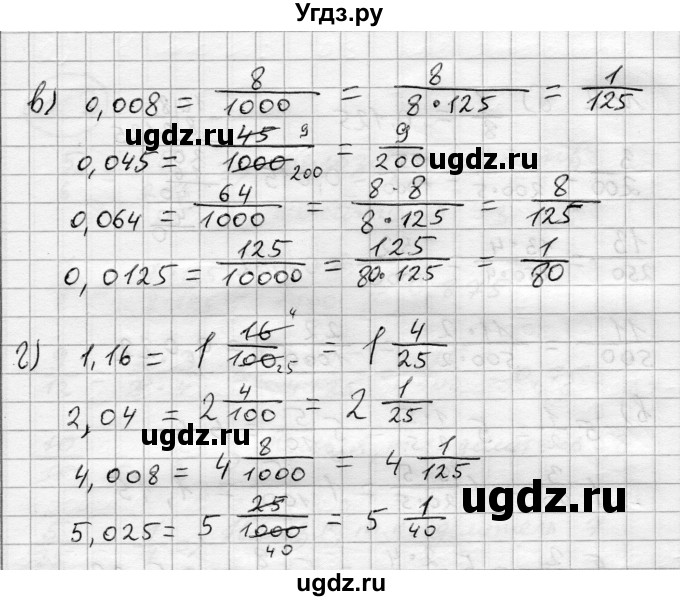 Угдз.ру
в) 0,008 = 8/1000 = 8/(8·125) = 1/125
ugdz.ru ugdz.ru
0,045 = 45/1000 9 200 = 9/200
0,064 = 64/1000 = 8·8/(8·125) = 8/125
0,0125 = 125/10000 = 125/(80·125) = 1/80
г) 1,16 = 1 16/100 4 25 = 1 4/25
2,04 = 2 4/100 = 2 1/25
ugdz.ru
4,008 = 4 8/1000 = 4 1/125
ugdz.ru
5,025 = 5 25/1000 40 = 5 1/40
ugdz.ru